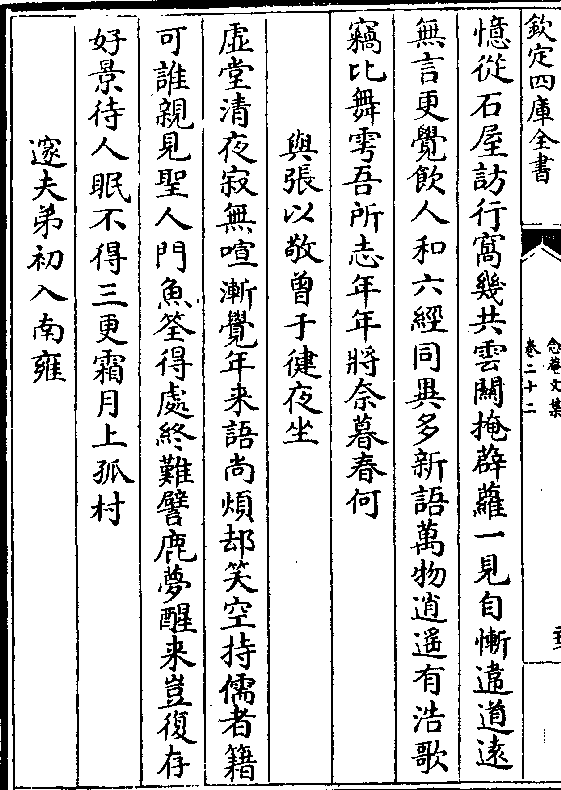 欽定四庫全書
念菴文集
卷二十二
憶從石屋訪行窩幾共雲關掩薜蘿一見自慚違道遠
無言更覺飲人和六經同異多新語萬物逍遙有浩歌
竊比舞雩吾所志年年將奈暮春何
與張以敬曾于健夜坐
虛堂清夜寂無喧漸覺年来語尚煩却笑空持儒者籍
可誰親見聖人門魚筌得處終難譬鹿夢醒来豈復存
好景待人眠不得三更霜月上孤村
邃夫弟初入南雍